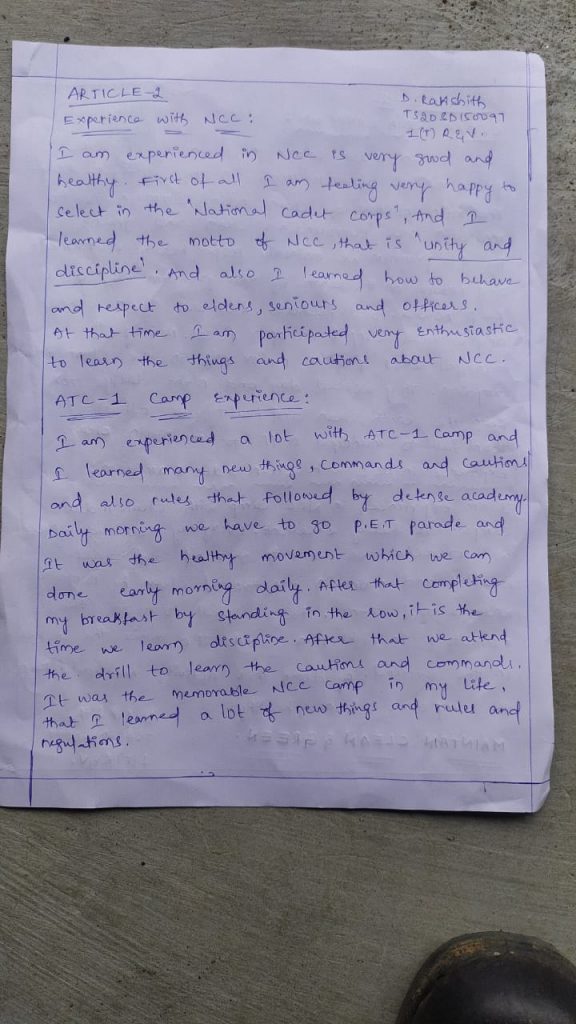 ARTICLE-2
D. Rakshith
Experience with NCC:
I am experienced in NCC is very good and
healthy. First of all I am feeling very happy to
select in the "National Cadet Corps", And I
learned the motto of NCC, that is "unity and
discipline". And also I learned how to behave
and respect to elders, seniours and officers.
At that time I am participated very Enthusiastic
to learn the things and cautions about NCC.
ATC-1 Camp Experience:
I am experienced a lot with ATC-1 Camp and
I learned many new things, Commands and Cautions
and also rules that followed by defense academy.
Daily morning we have to go P.E.T parade and
It was the healthy movement which we can
done early morning daily. After that completing
my breakfast by standing in the row, it is the
time we learn discipline. After that we attend
the drill to learn the cautions and commands.
It was the memorable NCC Camp in my life,
that I learned a lot of new things and rules and
regulations.